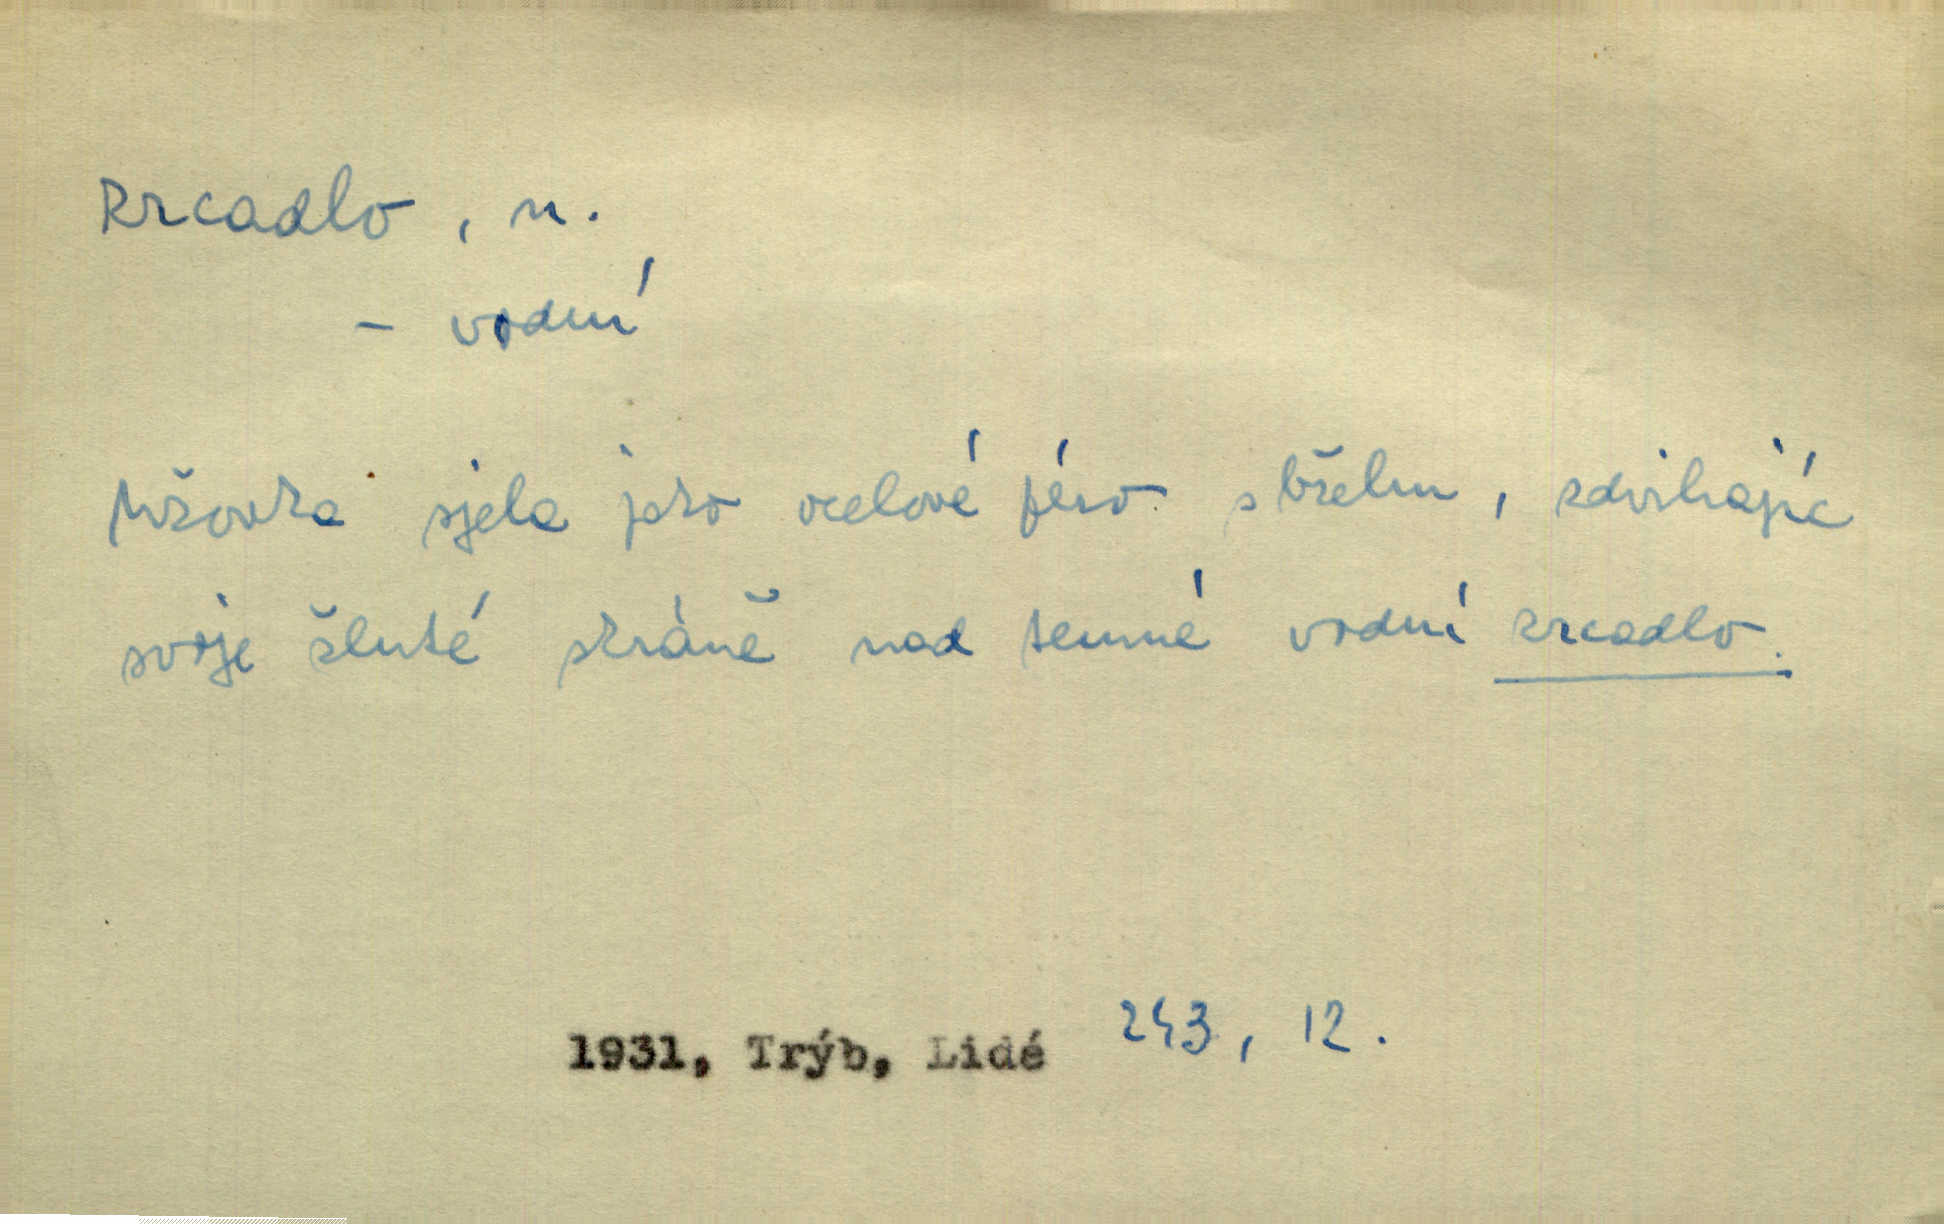 Zrcadlo, n.
– vodní
Užovka sjela jako ocelové péro s břehu, zdvihajíc
svoje žluté skráně nad temné vodní zrcadlo.
1931, Trýb, Lidé 243, 12.